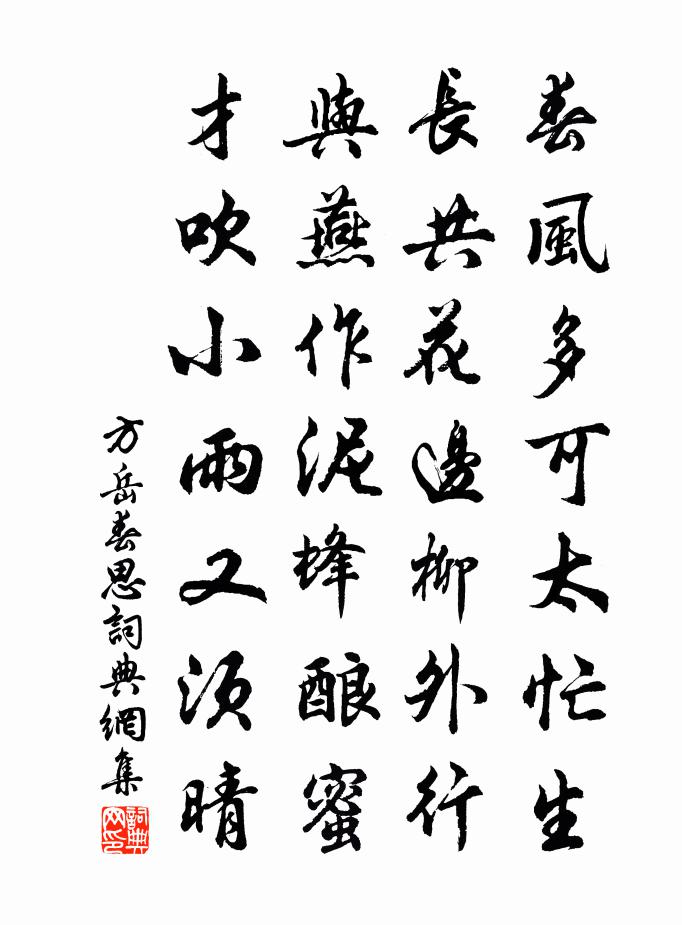 春風多可太忙生
長共花邊柳外行
與燕作泥蜂酿蜜
才吹小雨又须晴
方岳春思詞典網集
詞典網印